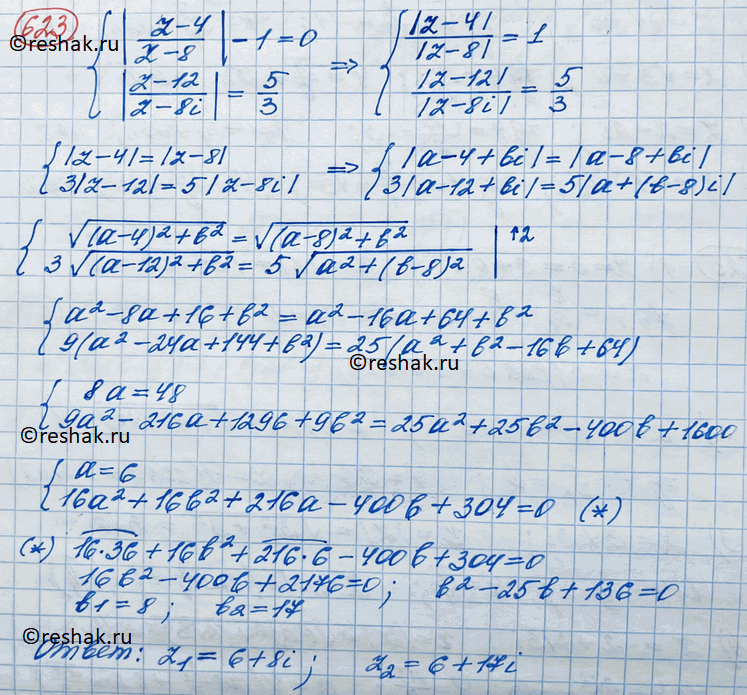 623
©reshak.ru
{ |z-4/z-8| - 1 = 0 ⇒ { |z-4|/|z-8| = 1
|z-12/z-8i| = 5/3 |z-12|/|z-8i| = 5/3
{ |z-4| = |z-8| ⇒ { |a-4+bi| = |a-8+bi|
3|z-12| = 5|z-8i| 3|a-12+bi| = 5|a+(b-8)i|
{ √(a-4)²+b² = √(a-8)²+b² | ↑2
3√(a-12)²+b² = 5√a²+(b-8)²
{ a²-8a+16+b² = a²-16a+64+b²
9(a²-24a+144+b²) = 25(a²+b²-16b+64)
©reshak.ru
{ 8a=48
9a²-216a+1296+9b² = 25a²+25b²-400b+1600
©reshak.ru
{ a=6
16a²+16b²+216a-400b+304=0 (*)
(*) 16·36+16b²+216·6-400b+304=0
16b²-400b+2176=0; b²-25b+136=0
b1=8; b2=17
©reshak.ru
Ответ: z₁=6+8i; z₂=6+17i